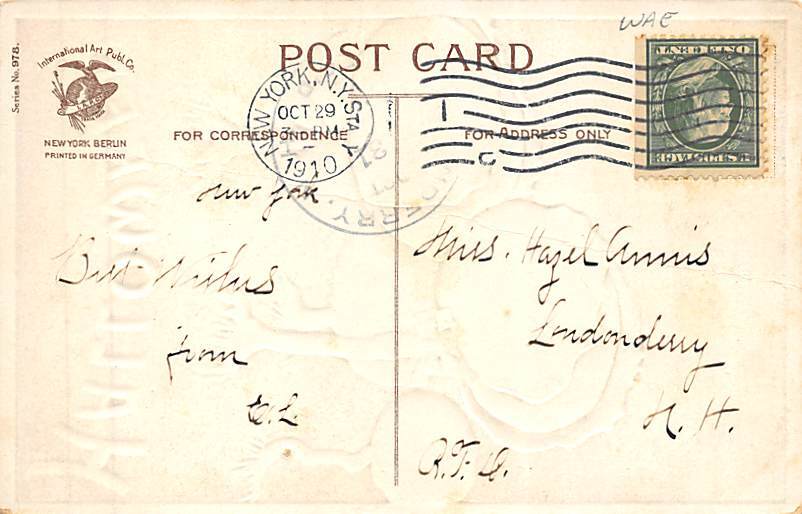 WAE
Series No. 978.
International Art Publ. Co.
I.A.P.Co
NEW YORK BERLIN
PRINTED IN GERMANY
POST CARD
NEW YORK, N.Y. STA. Y
OCT 29
1910
FOR CORRESPONDENCE
FOR ADDRESS ONLY
ONE CENT
U.S. POSTAGE
New York
Best Wishes
from
Miss. Hazel Annis
Londonderry
N. H.
R. F. D.